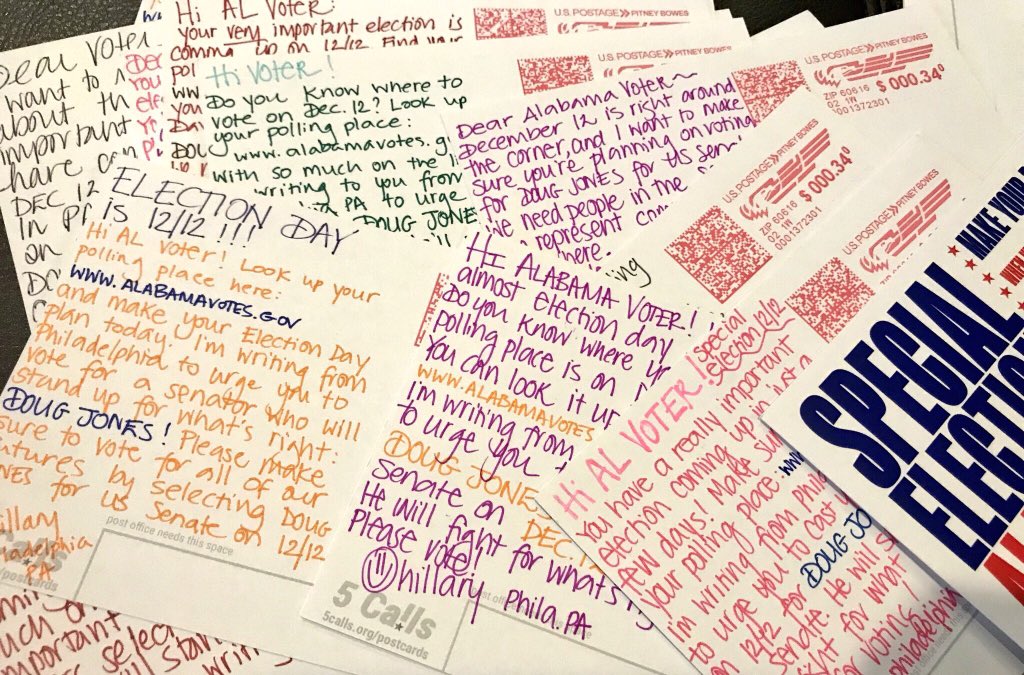 Dear Voter
want to
about th
important
share
DEC. 12
in
on
Hi AL Voter:
your very important election is
coming up on 12/12. Find your
Hi Voter!
Do you know where to
vote on Dec. 12? Look up
your polling place:
www.alabamavotes.g
with so much on the li
writing to you from
PA to urge
DOUG JONE
Dear Alabama Voter~
December 12 is right around
the corner, and I want to make
sure you're planning on voting
for DOUG JONES for US Sen
We need people in the
represent
here.
U.S. POSTAGE >> PITNEY BOWES
U.S. POSTAGE >> PITNEY BOWES
U.S. POSTAGE >> PITNEY BOWES
ZIP 60616 $ 000.34⁰
02 1W
0001372301
U.S. POSTAGE >> PITNEY BOWES
ZIP 60616 $ 000.34⁰
02 1W
0001372301
U.S. POSTAGE >> PITNEY BOWES
ELECTION DAY
is 12/12!!!
Hi AL Voter! Look up your
polling place here:
WWW.ALABAMAVOTES.GOV
and make your Election Day
plan today. I'm writing from
Philadelphia to urge you to
vote for a senator who will
stand up for what's right:
DOUG JONES! Please make
sure to vote for all of our
futures by selecting DOUG
NES for US Senate on 12/12
hillary
PA
Calls
post office needs this space
HI ALABAMA VOTER!
almost election day
Do you know where y
polling place is on
You can look it up
WWW.ALABAMAVOTES
I'm writing from
to urge you
DOUG JONE
Senate on DEC.
He will fight for what's
Please vote!
hillary Phila. PA
5 Calls
5calls.org/postcards
Hi AL VOTER! special
election 12/12
You have a really important
election coming up in just a
few days! Make sur
your polling place: ww
I'm writing from phil
to urge you to cast
on 12/12 for DOUG JO
Senate. He will
fight for what
for voting
philadelphia
MAKE YOUR
SPECIAL
ELECTIO